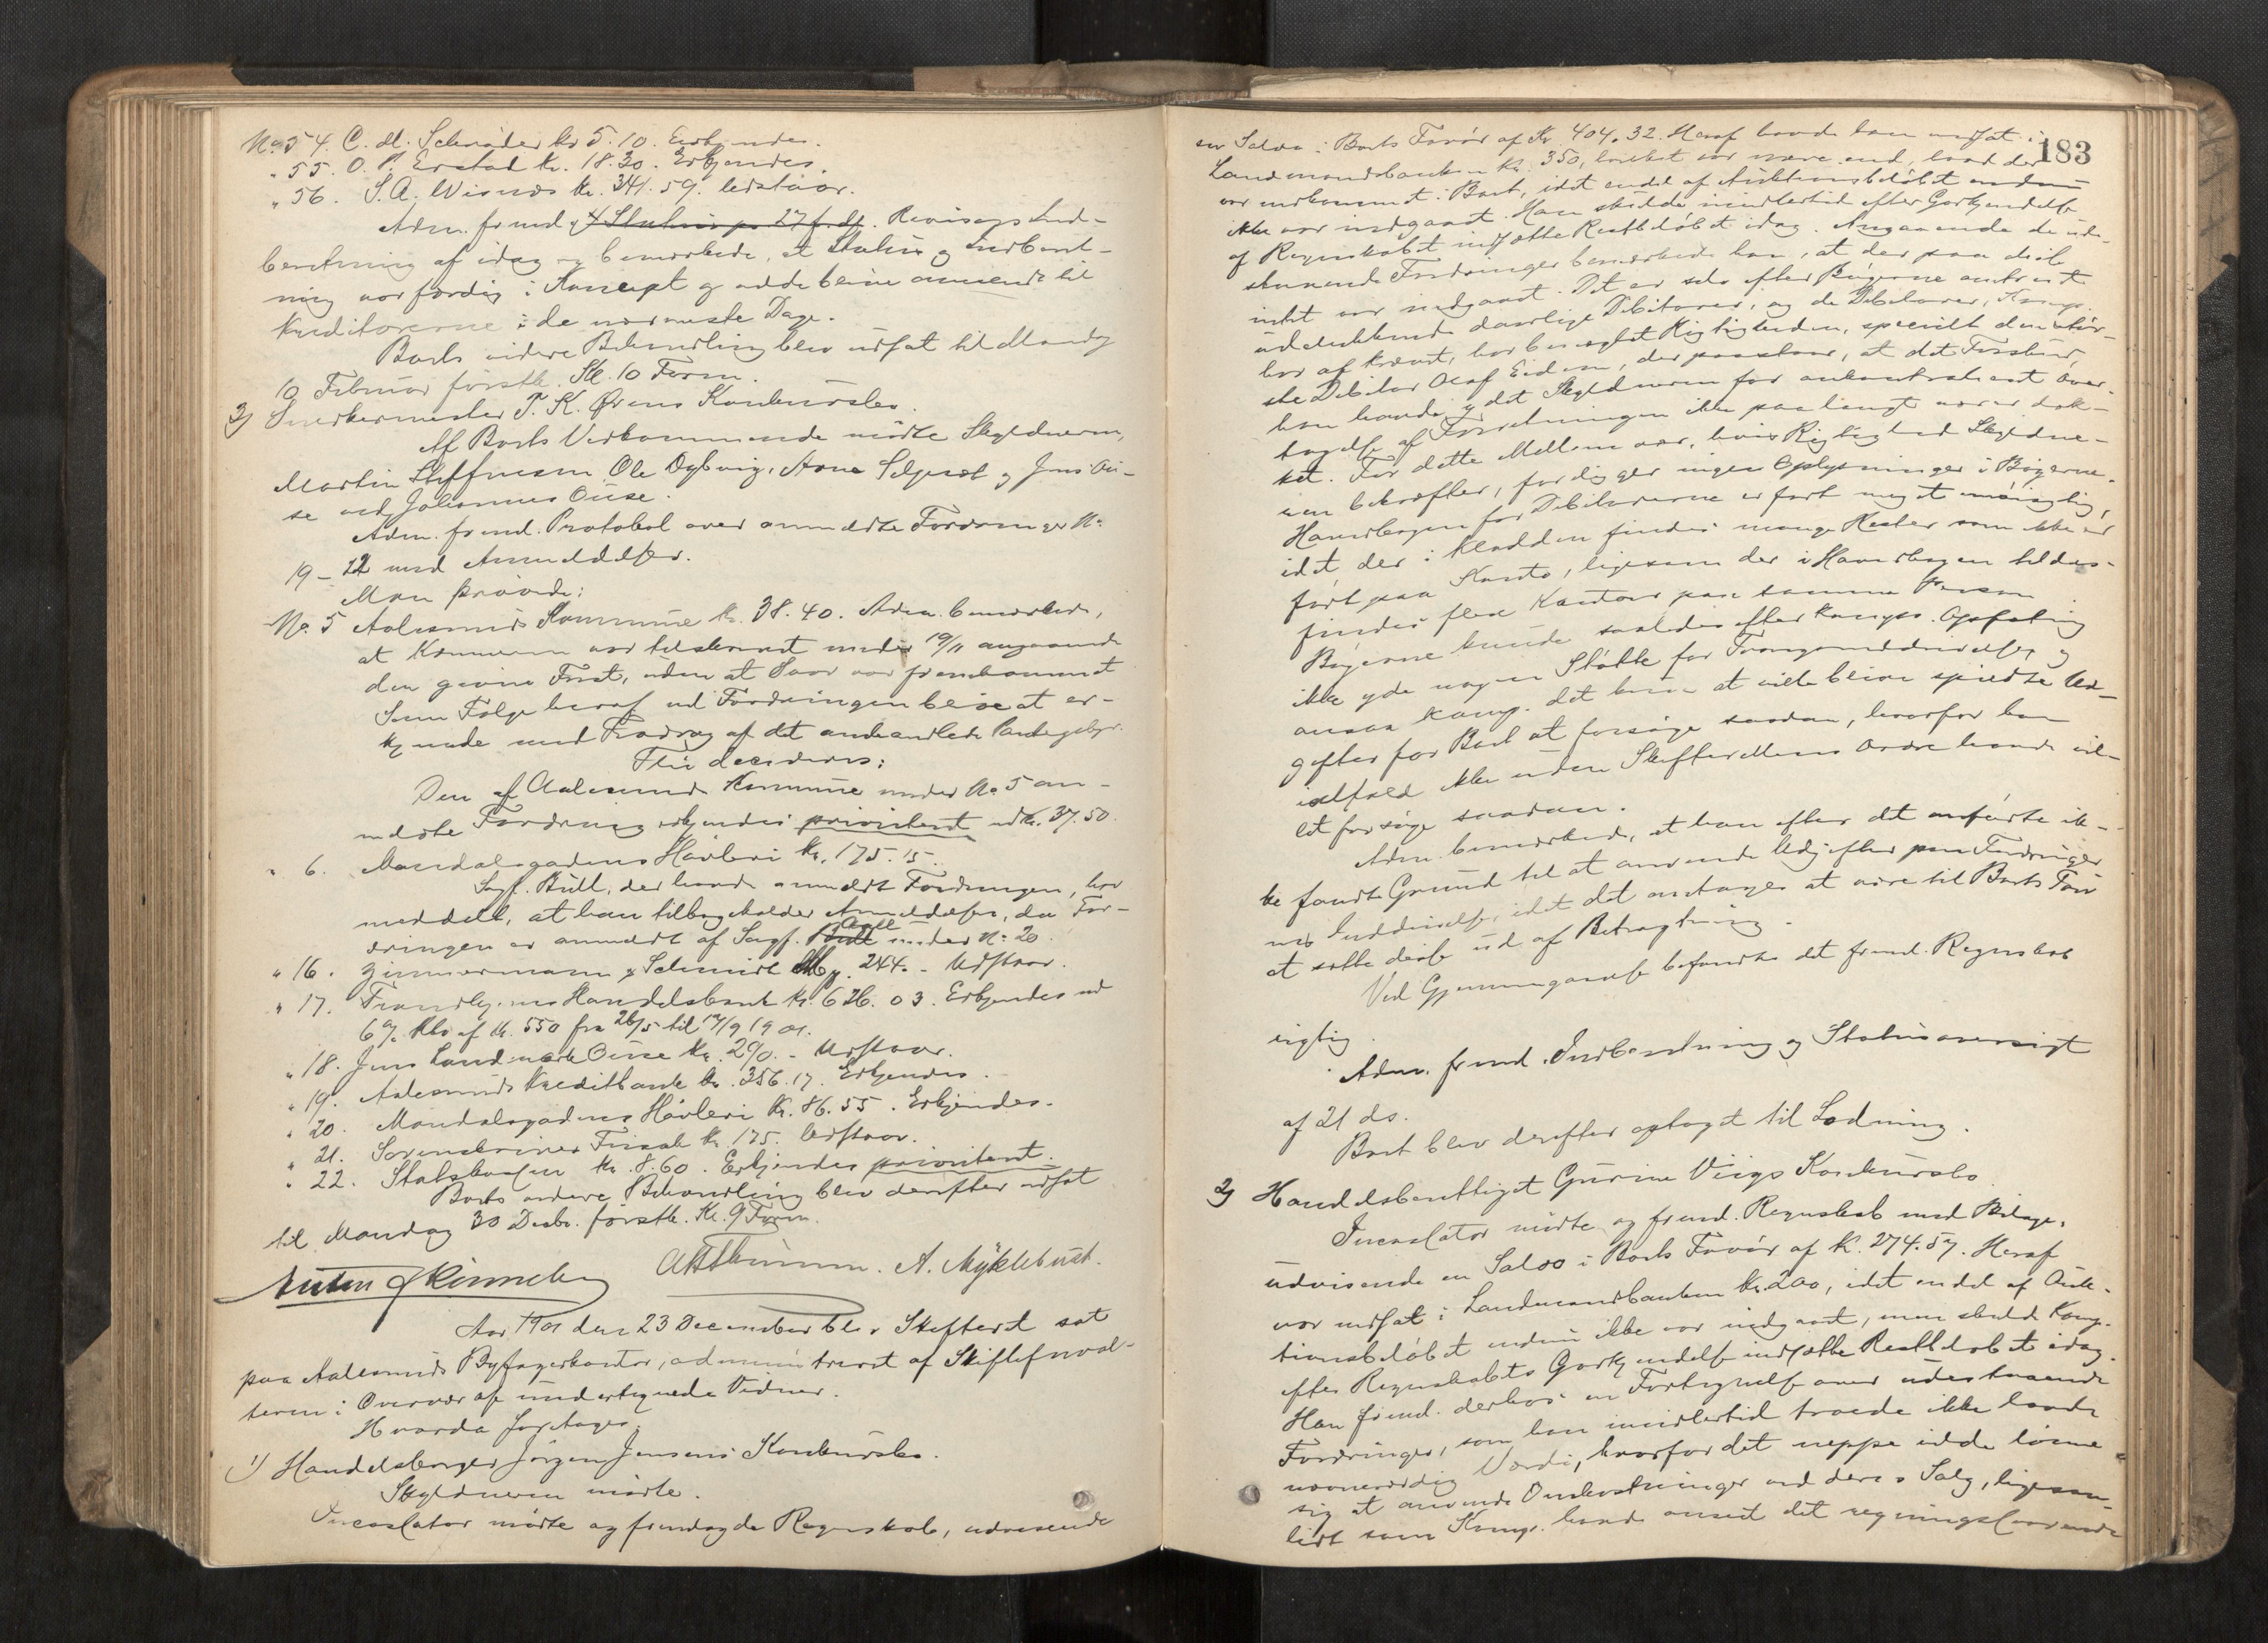 No 54. C. M. Schrøder Kr 5.10. Erkjendes.
" 55. O. P. Erstad Kr. 18.30. Erkjendes.
" 56. S. A. Wisnæs Kr. 341.59. Udstaar.
Adm. freml. Revisors Ind-
beretning af idag og bemærkede, at Status og Indberet-
ning var færdig i Koncept og vilde blive omsendt til
Kreditorerne i de nærmeste Dage.
Boets videre Behandling blev udsat til Mandag
10 Februar førstk. Kl. 10 Form.
3) Snedkermester T. K. Ørens Konkursbo.
Af Boets Vedkommende mødte Skyldneren,
Martin Steffensen, Ole Dybvig, Arne Seljeset og Jens Ou-
se ved Johannes Ouse.
Adm. freml. Protokol over anmeldte Fordringer No
19 - 22 med Anmeldelser.
Man prøvede:
No. 5 Aalesunds Kommune kr. 38.40. Adm. bemærkede,
at Kæmneren var tilskrevet under 19/11 angaaende
den givne Frist, uden at Svar var fremkommet
Som Følge heraf vil Fordringen blive at er-
kjende med Fradrag af det anhandlede Pantegebyr.
Thi decideres:
Den af Aalesunds Kommune under No. 5 an-
meldte Fordring erkjendes prioritert med Kr. 37.50.
" 6. Mandalsgadens Høvleri Kr. 175.15.
Sagf. Bull, der havde anmeldt Fordringen, har
meddelt, at han tilbageholder Anmeldelsen, da For-
dringen er anmeldt af Sagf. under No. 20.
" 16. Zimmermann & Schmidt 244. - Udstaar.
" 17. Trondhjems Handelsbank Kr. 626.03. Erkjendes med
6% Rente af Kr. 550 fra 26/5 til 14/9 1901.
" 18. Jens Landmark Ouse Kr. 290. - Udstaar.
" 19. Aalesunds Kreditbank Kr. 356.17. Erkjendes.
" 20. Mandalsgadens Høvleri Kr. 86.55. Erkjendes.
" 21. Sorenskriver Kr. 175. Udstaar.
" 22. Statskassen Kr. 8.60. Erkjendes prioritert.
Boets videre Behandling blev derefter udsat
til Mandag 30 Decbr. førstk. Kl. 9 Form.
A. Myklebust.
Aar 1901 den 23 December blev Skifteret sat
paa Aalesunds Byfogedkontor, administreret af Skifteforval-
teren i Overvær af undertegnede Vidner.
Hvorda foretages:
1) Handelsborger Jørgen Jensens Konkursbo.
Skyldneren mødte.
Incassator mødte og fremlagde Regnskab, udvisende
183
en Saldo i Boets Favør af Kr 404.32. Heraf havde han indsat i
Landmandsbanken Kr. 350, hvilket var mere end, hvad der
var indkommet i Boet, idet endel af Auktionsbeløbet endnu
ikke var indgaaet. Han skulde imidlertid efter Godkjendelse
af Regnskabet indsætte Restbeløbet idag. Angaaende de ude-
staaende Fordringer bemærkede han, at der paa disse
intet var indgaaet. Det er selv efter Bøgerne
udelukkende daarlige Debitorer, og de Debitorer, Komp.
har af krævet, har benegtet Rigtigheden, specielt den stør-
ste Debitor Olaf Eidem, der paastaar, at det Forskud,
han havde gjort Skyldneren for
tagelse af Forretningen ikke paa langt nær er dæk-
ket. For dette Mellemvær, hvis Rigtighed Skyldne-
ren bekræfter, foreligger ingen Oplysninger i Bøgerne.
Hovedbogen for Debitorerne er ført meget unøiagtig,
idet der i Kladden findes mange Rester som ikke er
ført paa Konto, ligesom der i Hovedbogen tildels
findes flere Kontoer paa samme Person.
Bøgerne kunde saaledes efter Komps. Opfatning
ikke yde nogen Støtte for Tvangsinddrivelse og
ansaa Komp. det kun at ville blive spildte Ud-
gifter for Boet at forsøge saadan, hvorfor han
ialfald ikke uden Skifterettens Ordre havde vil-
let forsøge saadan.
Adm. bemærkede, at han efter det anførte ik-
ke fandt Grund til at anvende Udgifter paa Fordringer
nes Inddrivelse, idet det antages at være til Boets Tarv
at sætte disse ud af Betragtning.
Ved Gjennemgaaelse befandtes det freml. Regnskab
rigtig.
Adm. freml. Indberetning og Statusoversigt
af 21 ds.
Boet blev derefter optaget til Lodning.
2) Handelsberettiget Gurine Viigs Konkursbo.
Incassator mødte og freml. Regnskab med Bilage,
udvisende en Saldo i Boets Favør af Kr. 274.57. Heraf
var indsat i Landmandsbanken Kr. 200, idet endel af Auk-
tionsbeløbet endnu ikke var indgaaet, men skulde Komp.
efter Regnskabets Godkjendelse indsætte Restbeløbet idag.
Han freml. derhos en Fortegnelse over udestaaende
Fordringer, som han imidlertid troede ikke havde
nævneværdig Værdi, hvorfor det neppe vilde lønne
sig at anvende Omkostninger ved deres Salg, ligesaa-
lidt som Komp. havde anseet det regningssvarende